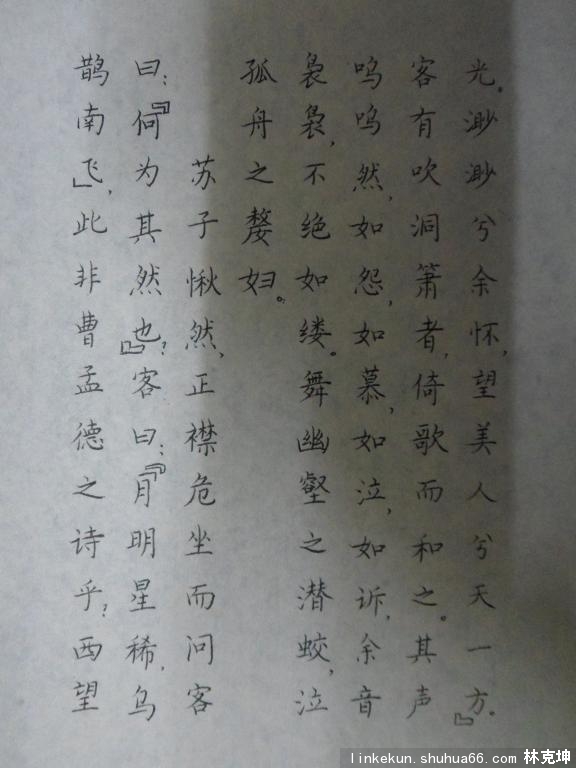 光。渺渺兮余怀，望美人兮天一方。』
客有吹洞箫者，倚歌而和之。其声
呜呜然，如怨，如慕，如泣，如诉，余音
袅袅，不绝如缕。舞幽壑之潜蛟，泣
孤舟之嫠妇。
苏子愀然，正襟危坐而问客
曰：『何为其然也？』客曰：『月明星稀，乌
鹊南飞』，此非曹孟德之诗乎？西望
linkekun.shuhua66.com 林克坤